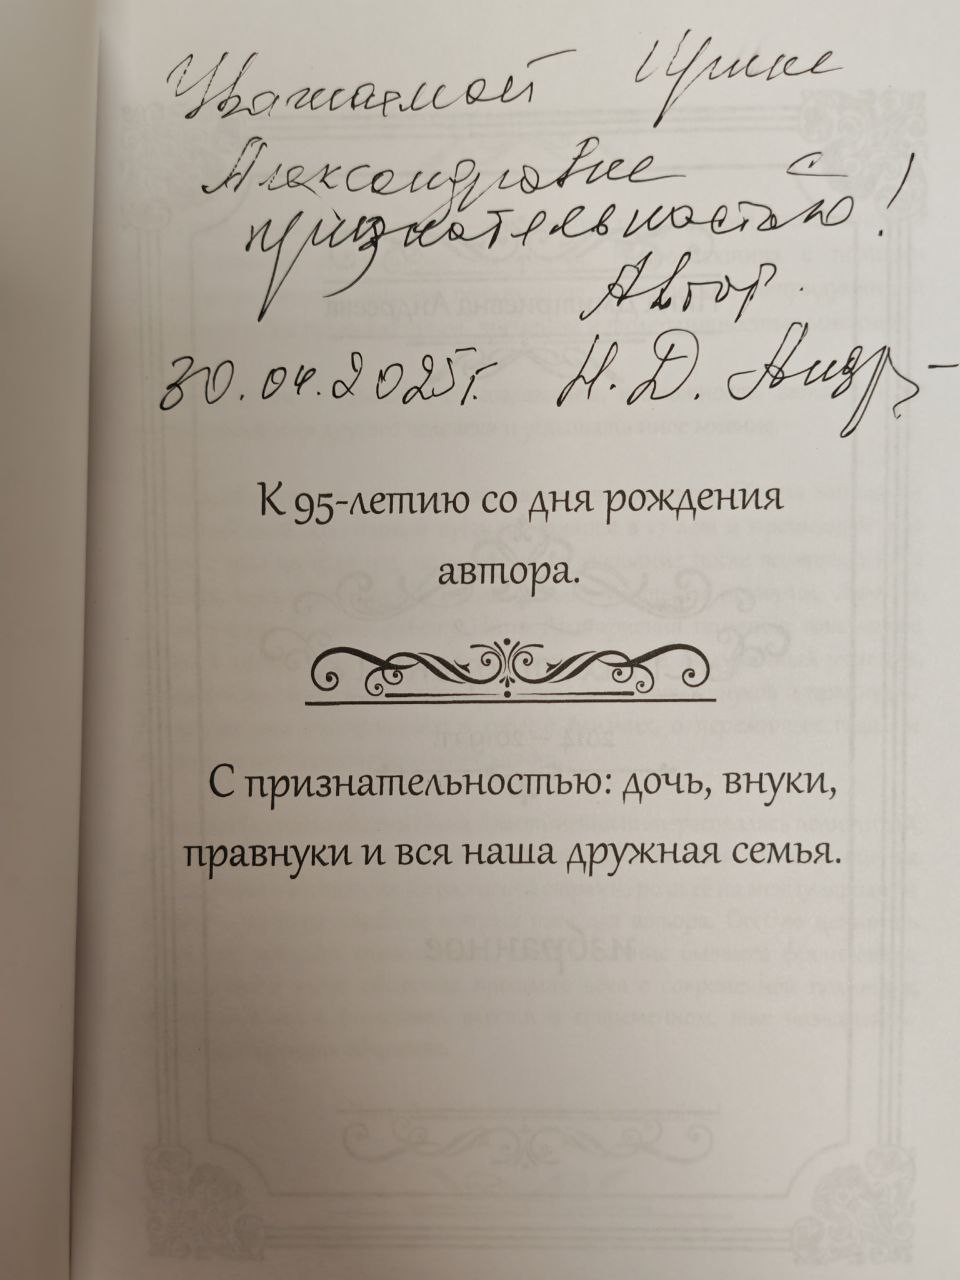 Уважаемой Ирине
Александровне с
признательностью!
Автор.
30.04.2025г. Н. Д. Андр
К 95-летию со дня рождения
автора.
С признательностью: дочь, внуки,
правнуки и вся наша дружная семья.